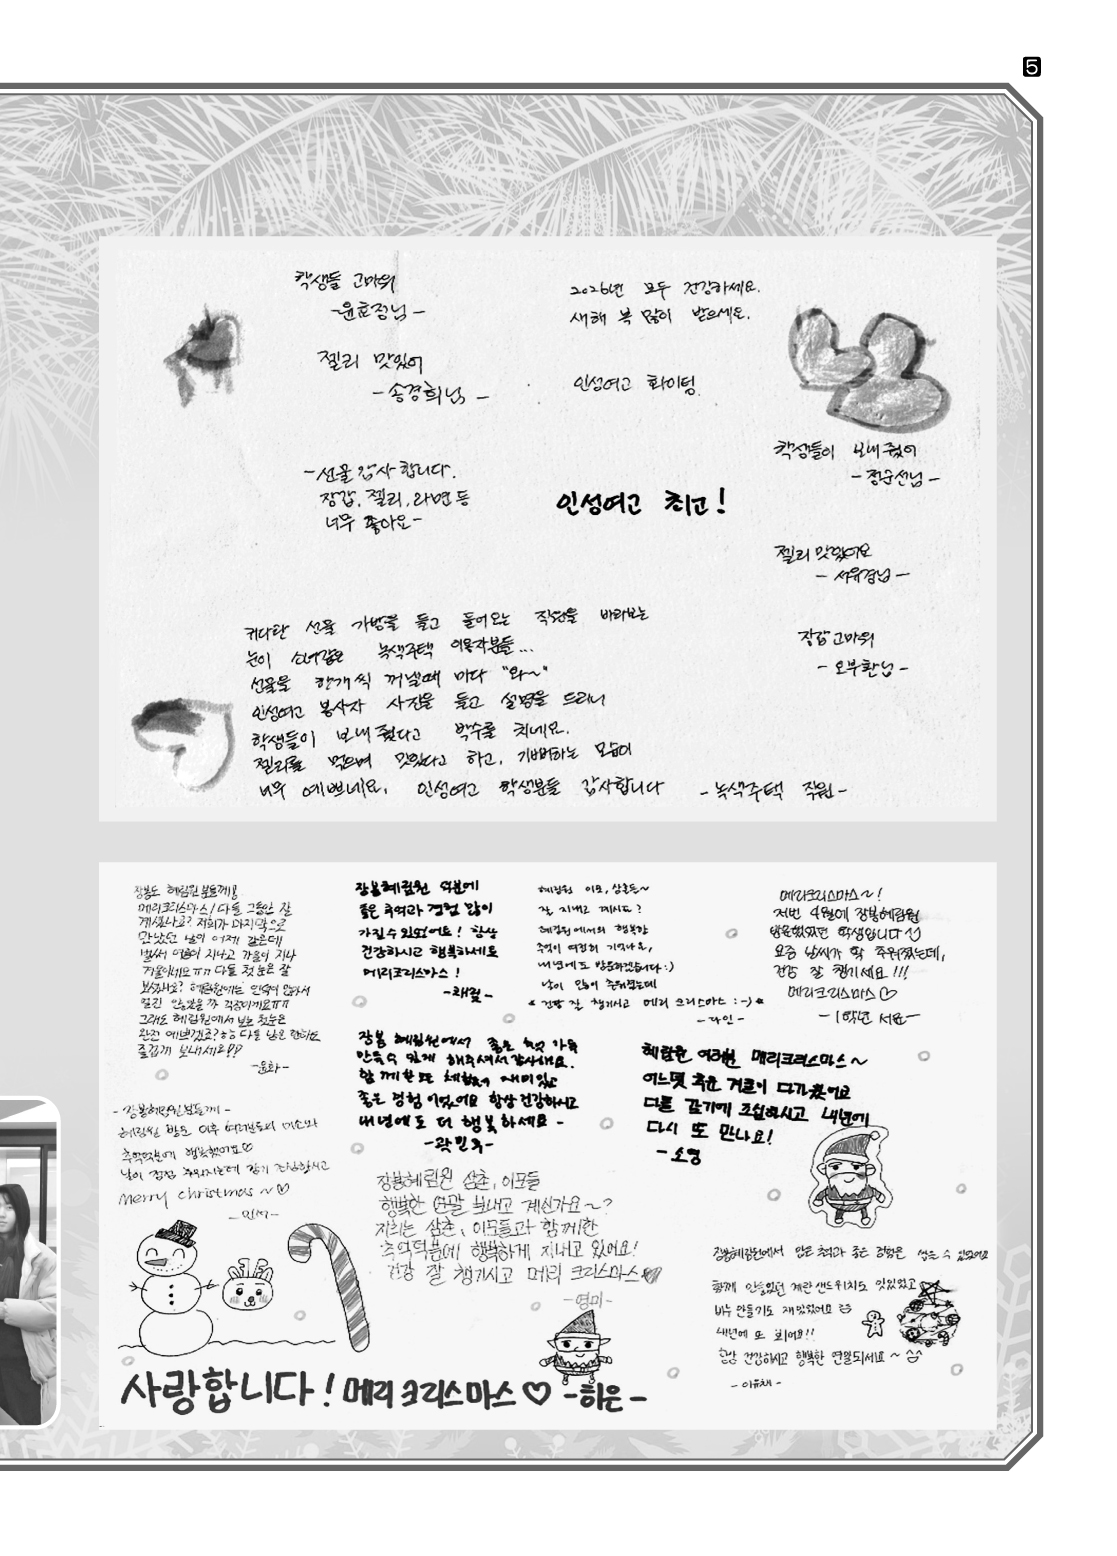 5
학생들 고마워
-윤효정님-
젤리 맛있어
-송경희님-
-선물 감사합니다.
장갑, 젤리, 라면 등
너무 좋아요-
2026년 모두 건강하세요.
새해 복 많이 받으세요.
인성여고 화이팅
인성여고 최고!
학생들이 보내줬어
-정순선님-
젤리 맛있어요
-서유경님-
장갑 고마워
-오부환님-
커다란 선물 가방을 들고 들어오는 직원을 바라보는
눈이 소녀같은 녹색주택 이용자분들...
선물을 한개씩 꺼낼때 마다 "와~"
인성여고 봉사자 사진을 들고 설명을 드리니
학생들이 보내줬다고 박수를 치네요.
젤리를 먹으며 맛있다고 하고, 기뻐하는 모습이
너무 예쁘네요. 인성여고 학생분들 감사합니다 -녹색주택 직원-
장봉도 혜림원 분들께!
메리크리스마스! 다들 그동안 잘
계셨나요? 저희가 마지막으로
만났던 날이 어제 같은데
벌써 여름이 지나고 가을이 지나
겨울이네요ㅠㅠ 다들 첫눈은 잘
보셨나요? 혜림원에는
그래도 혜림원에서 보는 첫눈은
완전 예쁘겠죠? ㅎㅎ 다들 남은 한해도
즐겁게 보내세요!?
-윤화-
장봉혜림원 덕분에
좋은 추억과 경험 많이
가질 수 있었어요! 항상
건강하시고 행복하세요
메리크리스마스!
-채림-
혜림원 이모, 삼촌들~
잘 지내고 계시죠?
혜림원에서의 행복한
추억이 여전히 기억나요,
내년에도 방문하겠습니다 :)
날이 많이 추워졌는데
*건강 잘 챙기시고 메리 크리스마스 :-)*
-다인-
메리크리스마스~!
저번 4월에 장봉혜림원
방문했었던 학생입니다
요즘 날씨가 확 추워졌는데,
건강 잘 챙기세요!!!
메리크리스마스♡
-1학년 서요-
장봉 혜림원에서 좋은 추억 가득
만들 수 있게 해주셔서 감사해요.
함께한 모든 체험이 재미있고
좋은 경험이었어요 항상 건강하시고
내년에도 더 행복하세요-
-곽민주-
혜림원 여러분 메리크리스마스~
어느덧 추운 겨울이 다가왔어요
다들 감기에 조심하시고 내년에
다시 또 만나요!
-소영
-장봉혜림원분들께-
혜림원 방문 이후 여러분들의 미소와
추억덕분에 행복했어요♡
날이 점점 추워지는데 감기 조심하시고
Merry Christmas~♡
-민서-
장봉혜림원 삼촌, 이모들
행복한 연말 보내고 계신가요~?
저희는 삼촌, 이모들과 함께한
추억덕분에 행복하게 지내고 있어요!
건강 잘 챙기시고 메리 크리스마스♥
-영미-
장봉혜림원에서 많은 추억과 좋은 경험을 쌓을 수 있었어요
함께 만들었던 계란샌드위치도 맛있었고
비누 만들기도 재밌었어요
내년에 또 뵈어요!!
항상 건강하시고 행복한 연말되세요~^^
-이유채-
사랑합니다! 메리크리스마스♡ -희은-